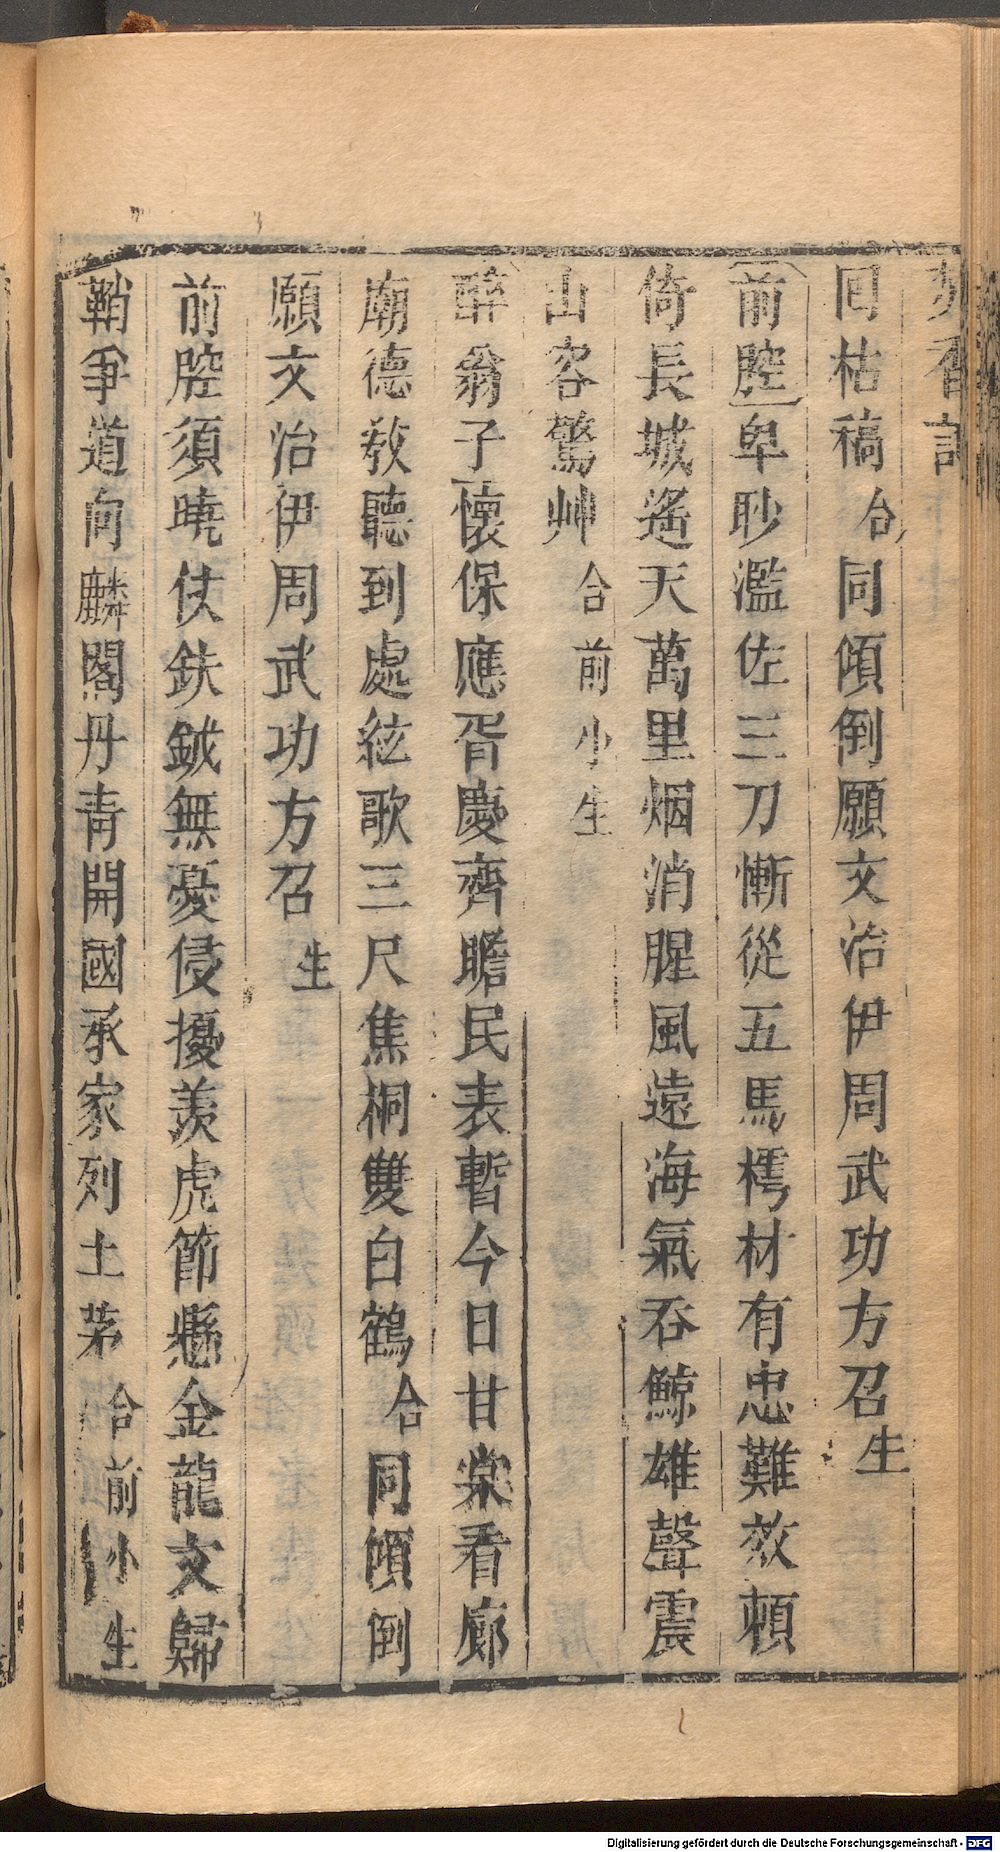 香記
回枯稿合同傾倒願文治伊周武功方召生
前腔卑眇濫佐三刀慚從五馬樗材有忠難效頼
倚長城遙天萬里烟消腥風遠海氣吞鯨雄聲震
山客驚艸合前小生
醉翁子懷保應胥慶齊瞻民表暫今日甘棠看廊
廟德教聽到處絃歌三尺焦桐雙白鶴合同傾倒
願文治伊周武功方召生
前腔須曉仗鈇鉞無憂侵擾羨虎節懸金龍文歸
鞘爭道向麟閣丹青開國承家列土茅合前小生
Digitalisierung gefördert durch die Deutsche Forschungsgemeinschaft - DFG